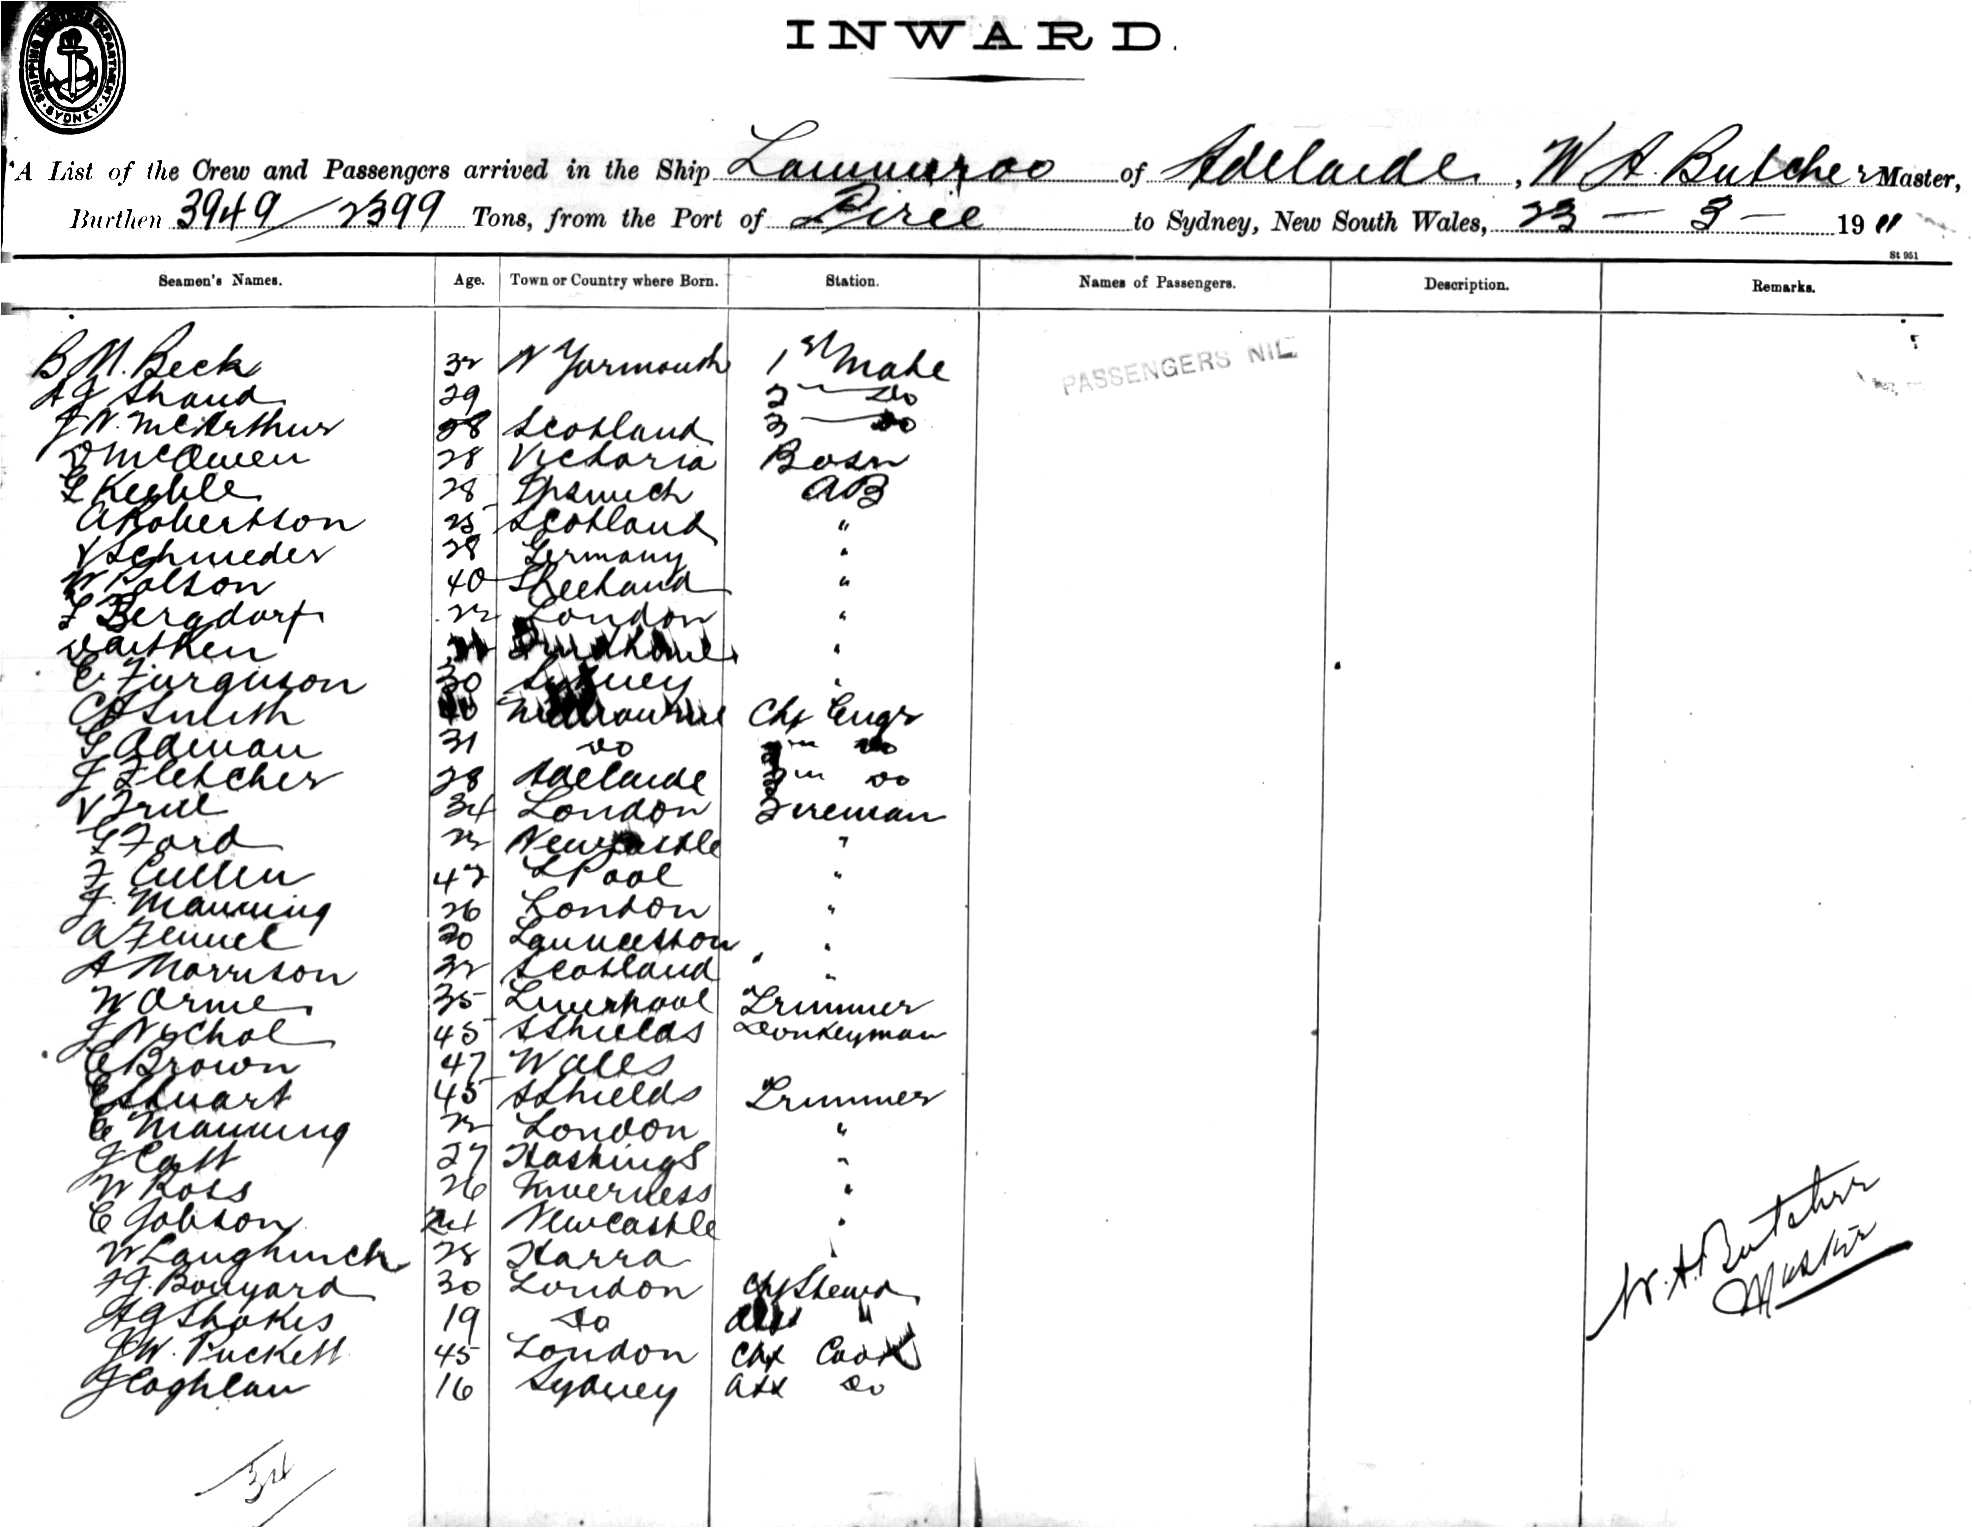 SHIPPING MASTER'S DEPARTMENT · SYDNEY ·
INWARD.
A List of the Crew and Passengers arrived in the Ship of Adelaide, W A. Butcher Master,
Burthen 3949/2399 Tons, from the Port of Pirie to Sydney, New South Wales, 23 — 3 — 1911
St 951
Seamen's Names. Age. Town or Country where Born. Station. Names of Passengers. Description. Remarks.
PASSENGERS NIL
B M. Beck 32 N Yarmouth 1st Mate
A J Shand 29 2 — Do
J N. McArthur 28 Scotland 3 — Do
D McQueen 28 Victoria Bosn
G Keeble 28 Ipswich AB
A Robertson 25 Scotland "
V Schnieder 28 Germany "
W Polson 40 "
F Bergdorf 22 London "
D Aitken "
C. Furguson 30 Sydney "
C A Smith 40 Melbourne Chf Engr
G Adman 31 Do 2nd Do
J Fletcher 28 Adelaide 3rd Do
V True 34 London Fireman
G Ford 22 Newcastle "
J Cullen 42 L Pool "
J. Manning 26 London "
A Fennel 20 Launceston "
A Morrison 32 Scotland "
W Orme 35 Liverpool Trimmer
J Nichol 45 S Shields Donkeyman
C Brown 47 Wales
C Stuart 45 S Shields Trimmer
C Manning 22 London "
J Catt 27 Hastings "
W Ross 26 Inverness "
C Jobson 24 Newcastle "
W 28 Harra "
F J. Bouyard 30 London Chf Steward
A G Stokes 19 Do Asst "
J W. Puckett 45 London Chf Cook
J Coghlan 16 Sydney Asst Do
W. A. Butcher
Master
34